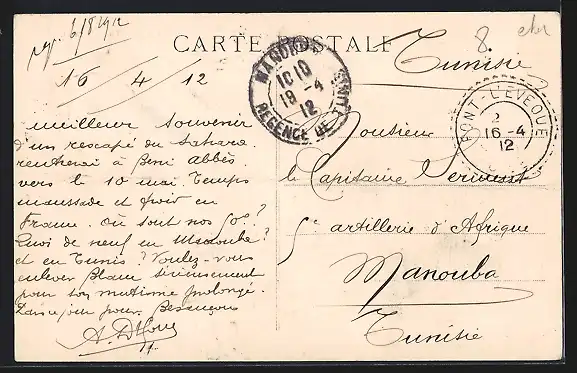 rep. 6/8 1912
8.
CARTE POSTALE
16 4 12
Tunisie
MANOUBA
18 -4
12
REGENCE DE TUNIS
PONT-L'EVEQUE
2
16-4
12
Meilleur souvenir
d'un rescapé du Sahara.
rentrerai à Beni Abbès
vers le 10 mai. Temps
maussade et froid en
France. Où sont nos 50°?
Quoi de neuf en Manouba?
et en Tunis? Voulez-vous
enlever Blanc sérieusement
pour son mutisme prolongé.
pour Besançon
Monsieur
le Capitaine
5e artillerie d'Afrique
Manouba
Tunisie